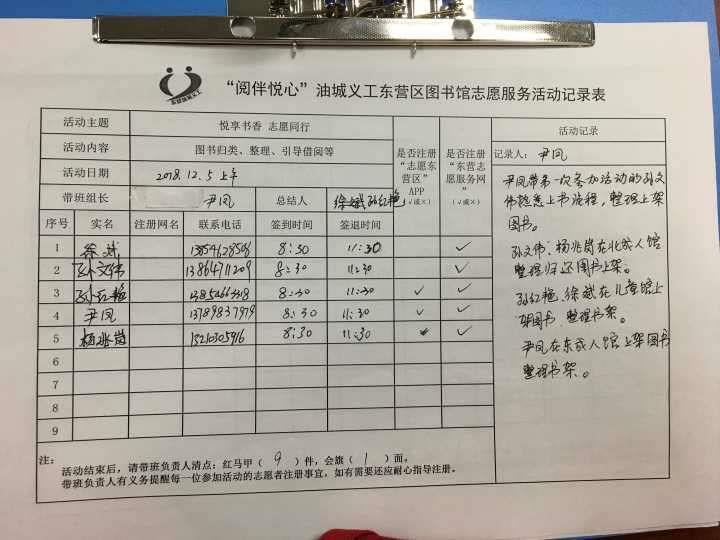 东营油城义工
“阅伴悦心”油城义工东营区图书馆志愿服务活动记录表
活动主题 悦享书香 志愿同行
活动内容 图书归类、整理、引导借阅等
活动日期 2018.12.5 上午
是否注册“志愿东营区”APP（√或×）
是否注册“东营志愿服务网”（√或×）
带班组长 尹凤 总结人 徐斌 孙红艳
序号 实名 注册网名 联系电话 签到时间 签退时间
1 徐斌 8:30 11:30 √
2 孙文伟 13864711209 8:30 11:30 √
3 孙红艳 8:30 11:30 √ √
4 尹凤 13789837979 8:30 11:30 √ √
5 杨兆岗 15210305916 8:30 11:30 √
6
7
8
9
活动记录
记录人：尹凤
尹凤带第一次参加活动的孙文
伟熟悉上书流程，整理上架
图书。
孙文伟、杨兆岗在北成人馆
整理归还图书上架。
孙红艳、徐斌在儿童馆上
架图书，整理书架。
尹凤在东成人馆上架图书
整理书架。
注：
活动结束后，请带班负责人清点：红马甲（ 9 ）件，会旗（ 1 ）面。
带班负责人有义务提醒每一位参加活动的志愿者注册事宜，如有需要还应耐心指导注册。